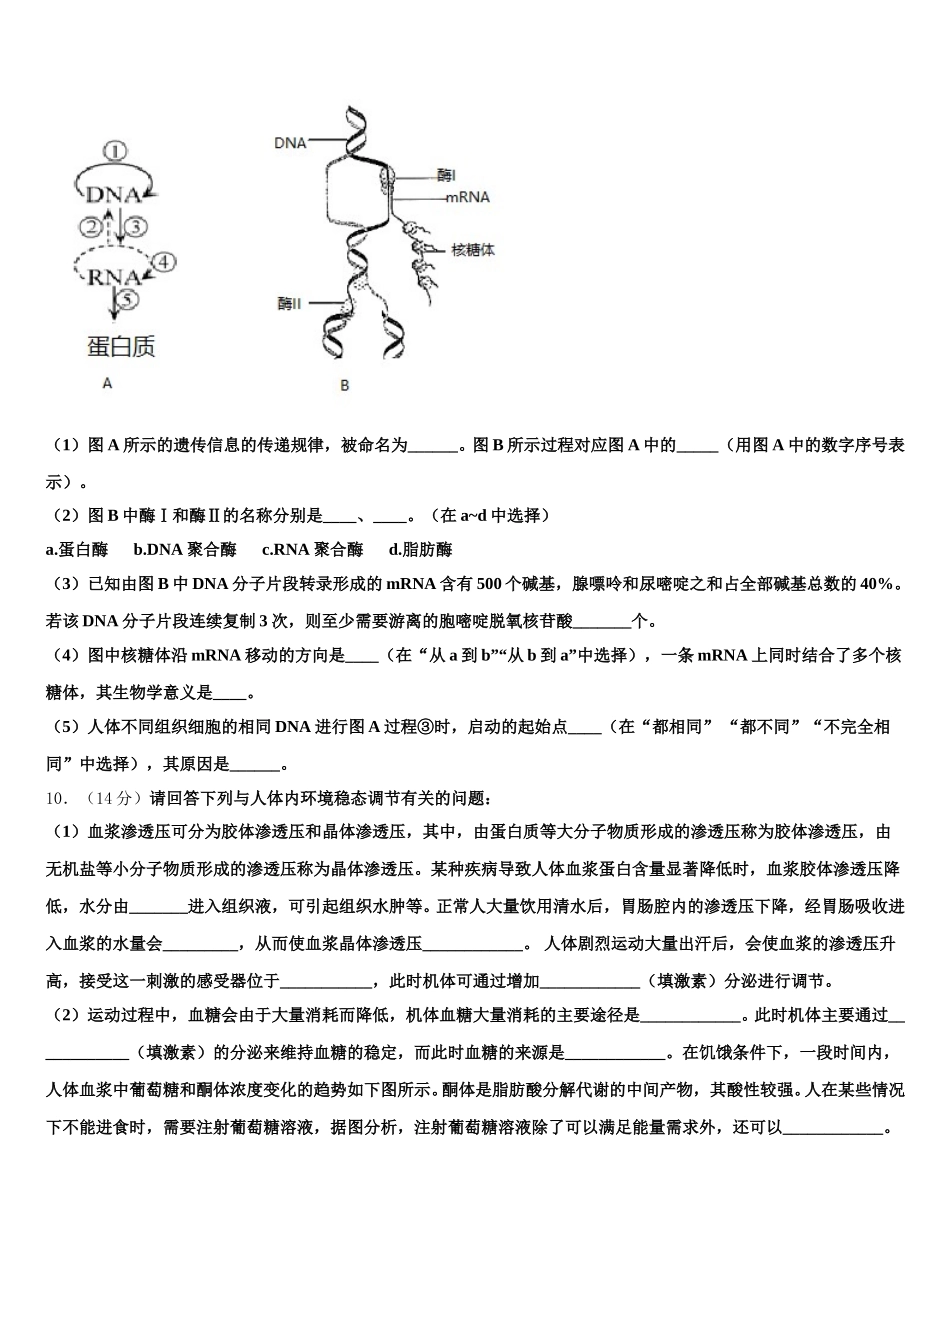 ①
DNA
②
③
RNA
④
⑤
蛋白质
A
DNA
酶I
mRNA
核糖体
酶II
B
（1）图 A 所示的遗传信息的传递规律，被命名为______。图 B 所示过程对应图 A 中的_____（用图 A 中的数字序号表
示）。
（2）图 B 中酶Ⅰ和酶Ⅱ的名称分别是____、____。（在 a~d 中选择）
a.蛋白酶 b.DNA 聚合酶 c.RNA 聚合酶 d.脂肪酶
（3）已知由图 B 中 DNA 分子片段转录形成的 mRNA 含有 500 个碱基，腺嘌呤和尿嘧啶之和占全部碱基总数的 40%。
若该 DNA 分子片段连续复制 3 次，则至少需要游离的胞嘧啶脱氧核苷酸_______个。
（4）图中核糖体沿 mRNA 移动的方向是____（在“从 a 到 b”“从 b 到 a”中选择），一条 mRNA 上同时结合了多个核
糖体，其生物学意义是____。
（5）人体不同组织细胞的相同 DNA 进行图 A 过程③时，启动的起始点____（在“都相同” “都不同” “不完全相
同”中选择），其原因是______。
10．（14 分）请回答下列与人体内环境稳态调节有关的问题：
（1）血浆渗透压可分为胶体渗透压和晶体渗透压，其中，由蛋白质等大分子物质形成的渗透压称为胶体渗透压，由
无机盐等小分子物质形成的渗透压称为晶体渗透压。某种疾病导致人体血浆蛋白含量显著降低时，血浆胶体渗透压降
低，水分由_______进入组织液，可引起组织水肿等。正常人大量饮用清水后，胃肠腔内的渗透压下降，经胃肠吸收进
入血浆的水量会_________，从而使血浆晶体渗透压____________。 人体剧烈运动大量出汗后，会使血浆的渗透压升
高，接受这一刺激的感受器位于___________，此时机体可通过增加____________（填激素）分泌进行调节。
（2）运动过程中，血糖会由于大量消耗而降低，机体血糖大量消耗的主要途径是____________。此时机体主要通过__
__________（填激素）的分泌来维持血糖的稳定，而此时血糖的来源是____________。在饥饿条件下，一段时间内，
人体血浆中葡萄糖和酮体浓度变化的趋势如下图所示。酮体是脂肪酸分解代谢的中间产物，其酸性较强。人在某些情况
下不能进食时，需要注射葡萄糖溶液，据图分析，注射葡萄糖溶液除了可以满足能量需求外，还可以____________。